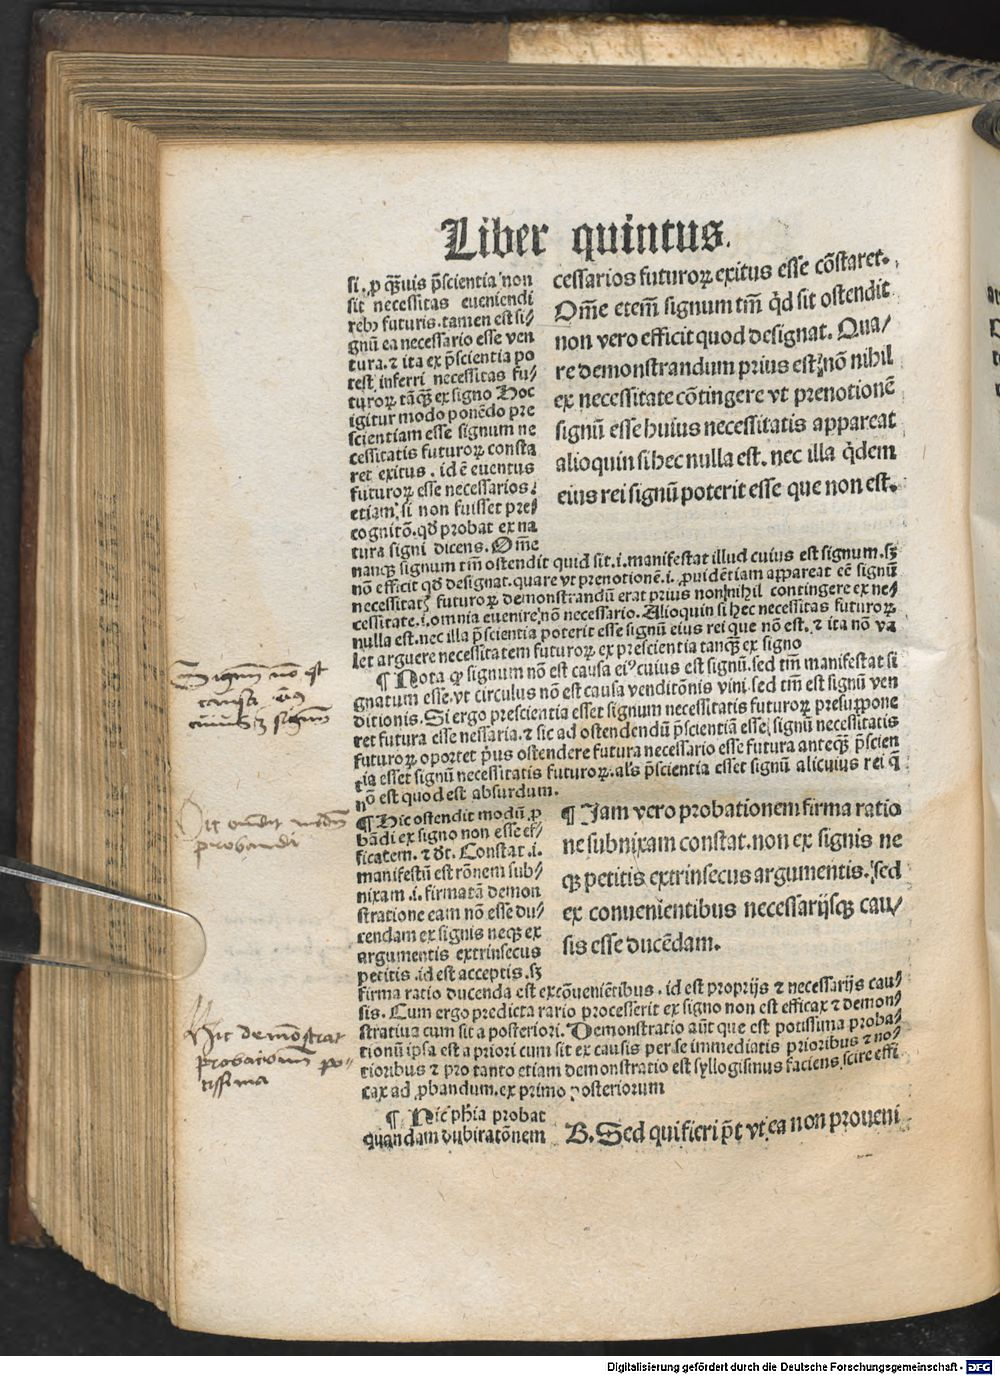 Liber quintus.
si. ꝓ qꝫuis p̄scientia non
sit necessitas eueniendi
rebꝰ futuris. tamen est si⸗
gnū ea necessario esse ven
tura. ⁊ ita ex p̄scientia po
test inferri necessitas fu⸗
turoꝝ tāqꝫ ex signo Hoc
igitur modo ponēdo pre
scientiam esse signum ne
cessitatis futuroꝝ consta
ret exitus. id ē euentus
futuroꝝ esse necessarios.
etiam si non fuisset pre⸗
cognitō. qd̄ probat ex na
tura signi dicens. Om̄e
cessarios futuroꝝ exitus esse cōstaret.
Om̄e etem̄ signum tm̄ qd̄ sit ostendit
non vero efficit quod designat. Qua⸗
re demonstrandum prius est nō nihil
ex necessitate cōtingere vt prenotionē
signū esse huius necessitatis appareat
alioquin si hec nulla est. nec illa q̇dem
eius rei signū poterit esse que non est.
nanqꝫ signum tm̄ ostendit quid sit .i. manifestat illud cuius est signum. sꝫ
nō efficit qd̄ designat. quare vt prenotionē .i. ꝓuidētiam appareat eē signū
necessitatꝭ futuroꝝ demonstrandū erat prius non nihil contingere ex ne⸗
cessitate .i. omnia euenire nō necessario. Alioquin si hec necessitas futuroꝝ
nulla est. nec illa p̄scientia poterit esse signū eius rei que nō est. ⁊ ita nō va
let arguere necessitatem futuroꝝ ex prescientia tanqꝫ ex signo
¶ Nota ꝙ signum nō est causa eiꝰ cuius est signū. sed tm̄ manifestat si
gnatum esse. vt circulus nō est causa venditōnis vini. sed tm̄ est signū ven
ditionis. Si ergo prescientia esset signum necessitatis futuroꝝ presuppone
ret futura esse nessaria. ⁊ sic ad ostendendū p̄scientiā esse signū necessitatis
futuroꝝ oportet pͥus ostendere futura necessario esse futura anteqꝫ p̄scien
tia esset signū necessitatis futuroꝝ. als̄ p̄scientia esset signū alicuius rei q̄
nō est quod est absurdum.
¶ Hic ostendit modū ꝓ
bādi ex signo non esse ef⸗
ficatem. ⁊ dt̄. Constat .i.
manifestū est rōnem sub⸗
nixam .i. firmatā demon
stratione eam nō esse du⸗
cendam ex signis neqꝫ ex
argumentis extrinsecus
petitis. id est acceptis. sꝫ
¶ Jam vero probationem firma ratio
ne subnixam constat. non ex signis ne
qꝫ petitis extrinsecus argumentis. sed
ex conuenientibus necessarijsqꝫ cau⸗
sis esse ducēdam.
firma ratio ducenda est ex cōueniētibus. id est proprijs ⁊ necessarijs cau⸗
sis. Cum ergo predicta rario processerit ex signo non est efficax ⁊ demon⸗
stratiua cum sit a posteriori. Demonstratio aūt que est potissima proba⸗
tionū ipsa est a priori cum sit ex causis per se immediatis prioribus ⁊ no⸗
tioribus ⁊ pro tanto etiam demonstratio est syllogismus faciens scire effi
cax ad ꝓbandum. ex primo posteriorum
¶ Hic ph̄ia probat
quandam dubitatōnem
B. Sed qui fieri pōt vt ea non proueni
Signum nō est
causa eiꝰ
cuius est signum
Hic ostendit modum
probandi
Hic demōstrat
probationum po⸗
tissima
Digitalisierung gefördert durch die Deutsche Forschungsgemeinschaft - DFG